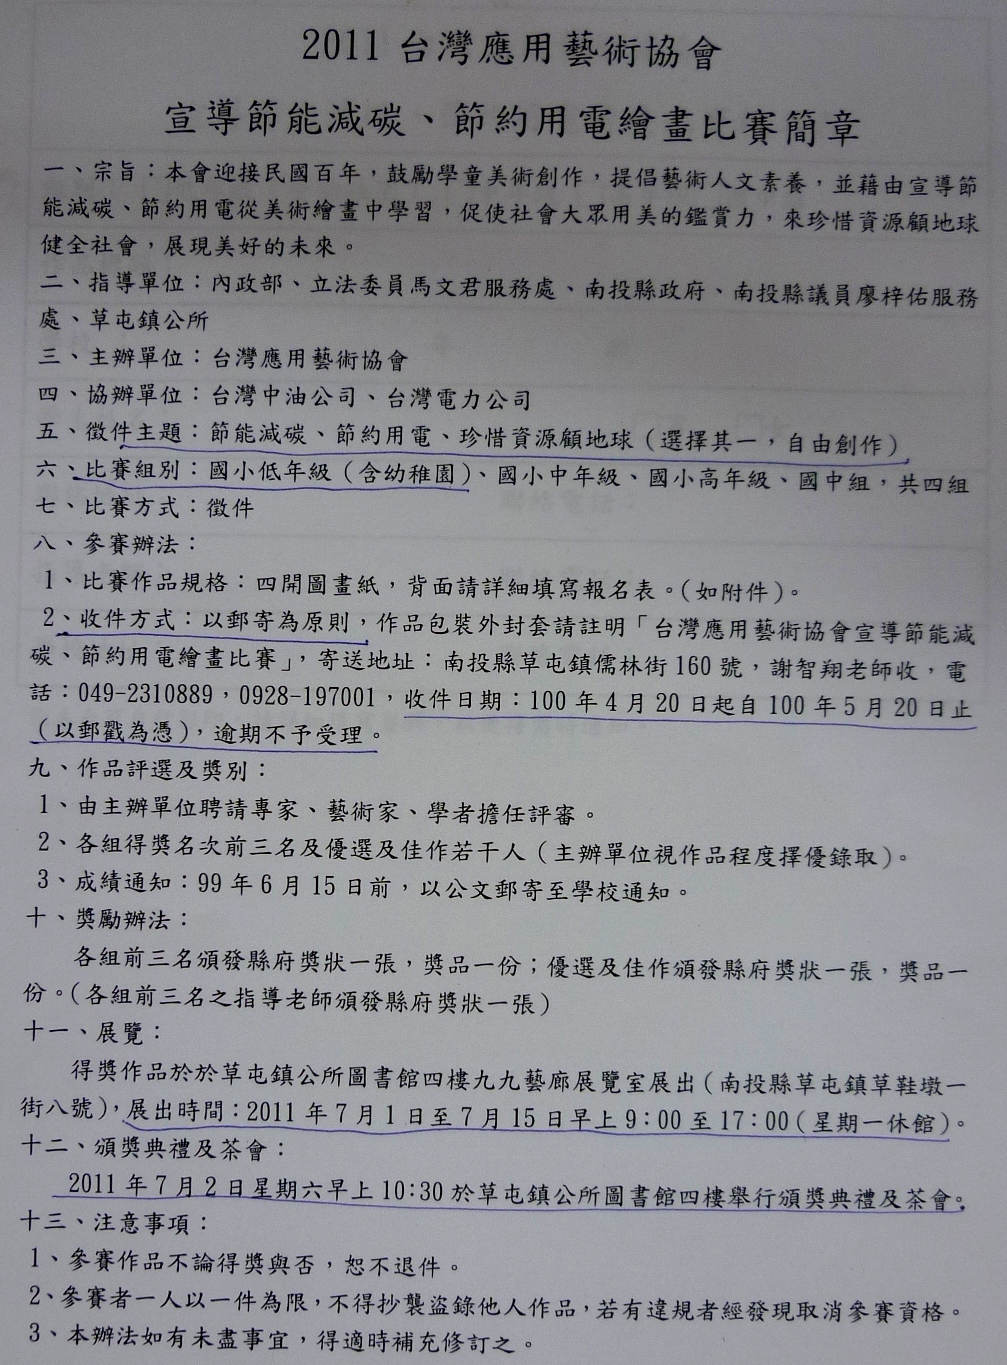 2011 台灣應用藝術協會
宣導節能減碳、節約用電繪畫比賽簡章
一、宗旨：本會迎接民國百年，鼓勵學童美術創作，提倡藝術人文素養，並藉由宣導節
能減碳、節約用電從美術繪畫中學習，促使社會大眾用美的鑑賞力，來珍惜資源顧地球
健全社會，展現美好的未來。
二、指導單位：內政部、立法委員馬文君服務處、南投縣政府、南投縣議員廖梓佑服務
處、草屯鎮公所
三、主辦單位：台灣應用藝術協會
四、協辦單位：台灣中油公司、台灣電力公司
五、徵件主題：節能減碳、節約用電、珍惜資源顧地球（選擇其一，自由創作）
六、比賽組別：國小低年級（含幼稚園）、國小中年級、國小高年級、國中組，共四組
七、比賽方式：徵件
八、參賽辦法：
1、比賽作品規格：四開圖畫紙，背面請詳細填寫報名表。（如附件）。
2、收件方式：以郵寄為原則，作品包裝外封套請註明「台灣應用藝術協會宣導節能減
碳、節約用電繪畫比賽」，寄送地址：南投縣草屯鎮儒林街 160 號，謝智翔老師收，電
話：049-2310889，0928-197001，收件日期：100 年 4 月 20 日起自 100 年 5 月 20 日止
（以郵戳為憑），逾期不予受理。
九、作品評選及獎別：
1、由主辦單位聘請專家、藝術家、學者擔任評審。
2、各組得獎名次前三名及優選及佳作若干人（主辦單位視作品程度擇優錄取）。
3、成績通知：99 年 6 月 15 日前，以公文郵寄至學校通知。
十、獎勵辦法：
各組前三名頒發縣府獎狀一張，獎品一份；優選及佳作頒發縣府獎狀一張，獎品一
份。（各組前三名之指導老師頒發縣府獎狀一張）
十一、展覽：
得獎作品於於草屯鎮公所圖書館四樓九九藝廊展覽室展出（南投縣草屯鎮草鞋墩一
街八號），展出時間：2011 年 7 月 1 日至 7 月 15 日早上 9：00 至 17：00（星期一休館）。
十二、頒獎典禮及茶會：
2011 年 7 月 2 日星期六早上 10:30 於草屯鎮公所圖書館四樓舉行頒獎典禮及茶會。
十三、注意事項：
1、參賽作品不論得獎與否，恕不退件。
2、參賽者一人以一件為限，不得抄襲盜錄他人作品，若有違規者經發現取消參賽資格。
3、本辦法如有未盡事宜，得適時補充修訂之。